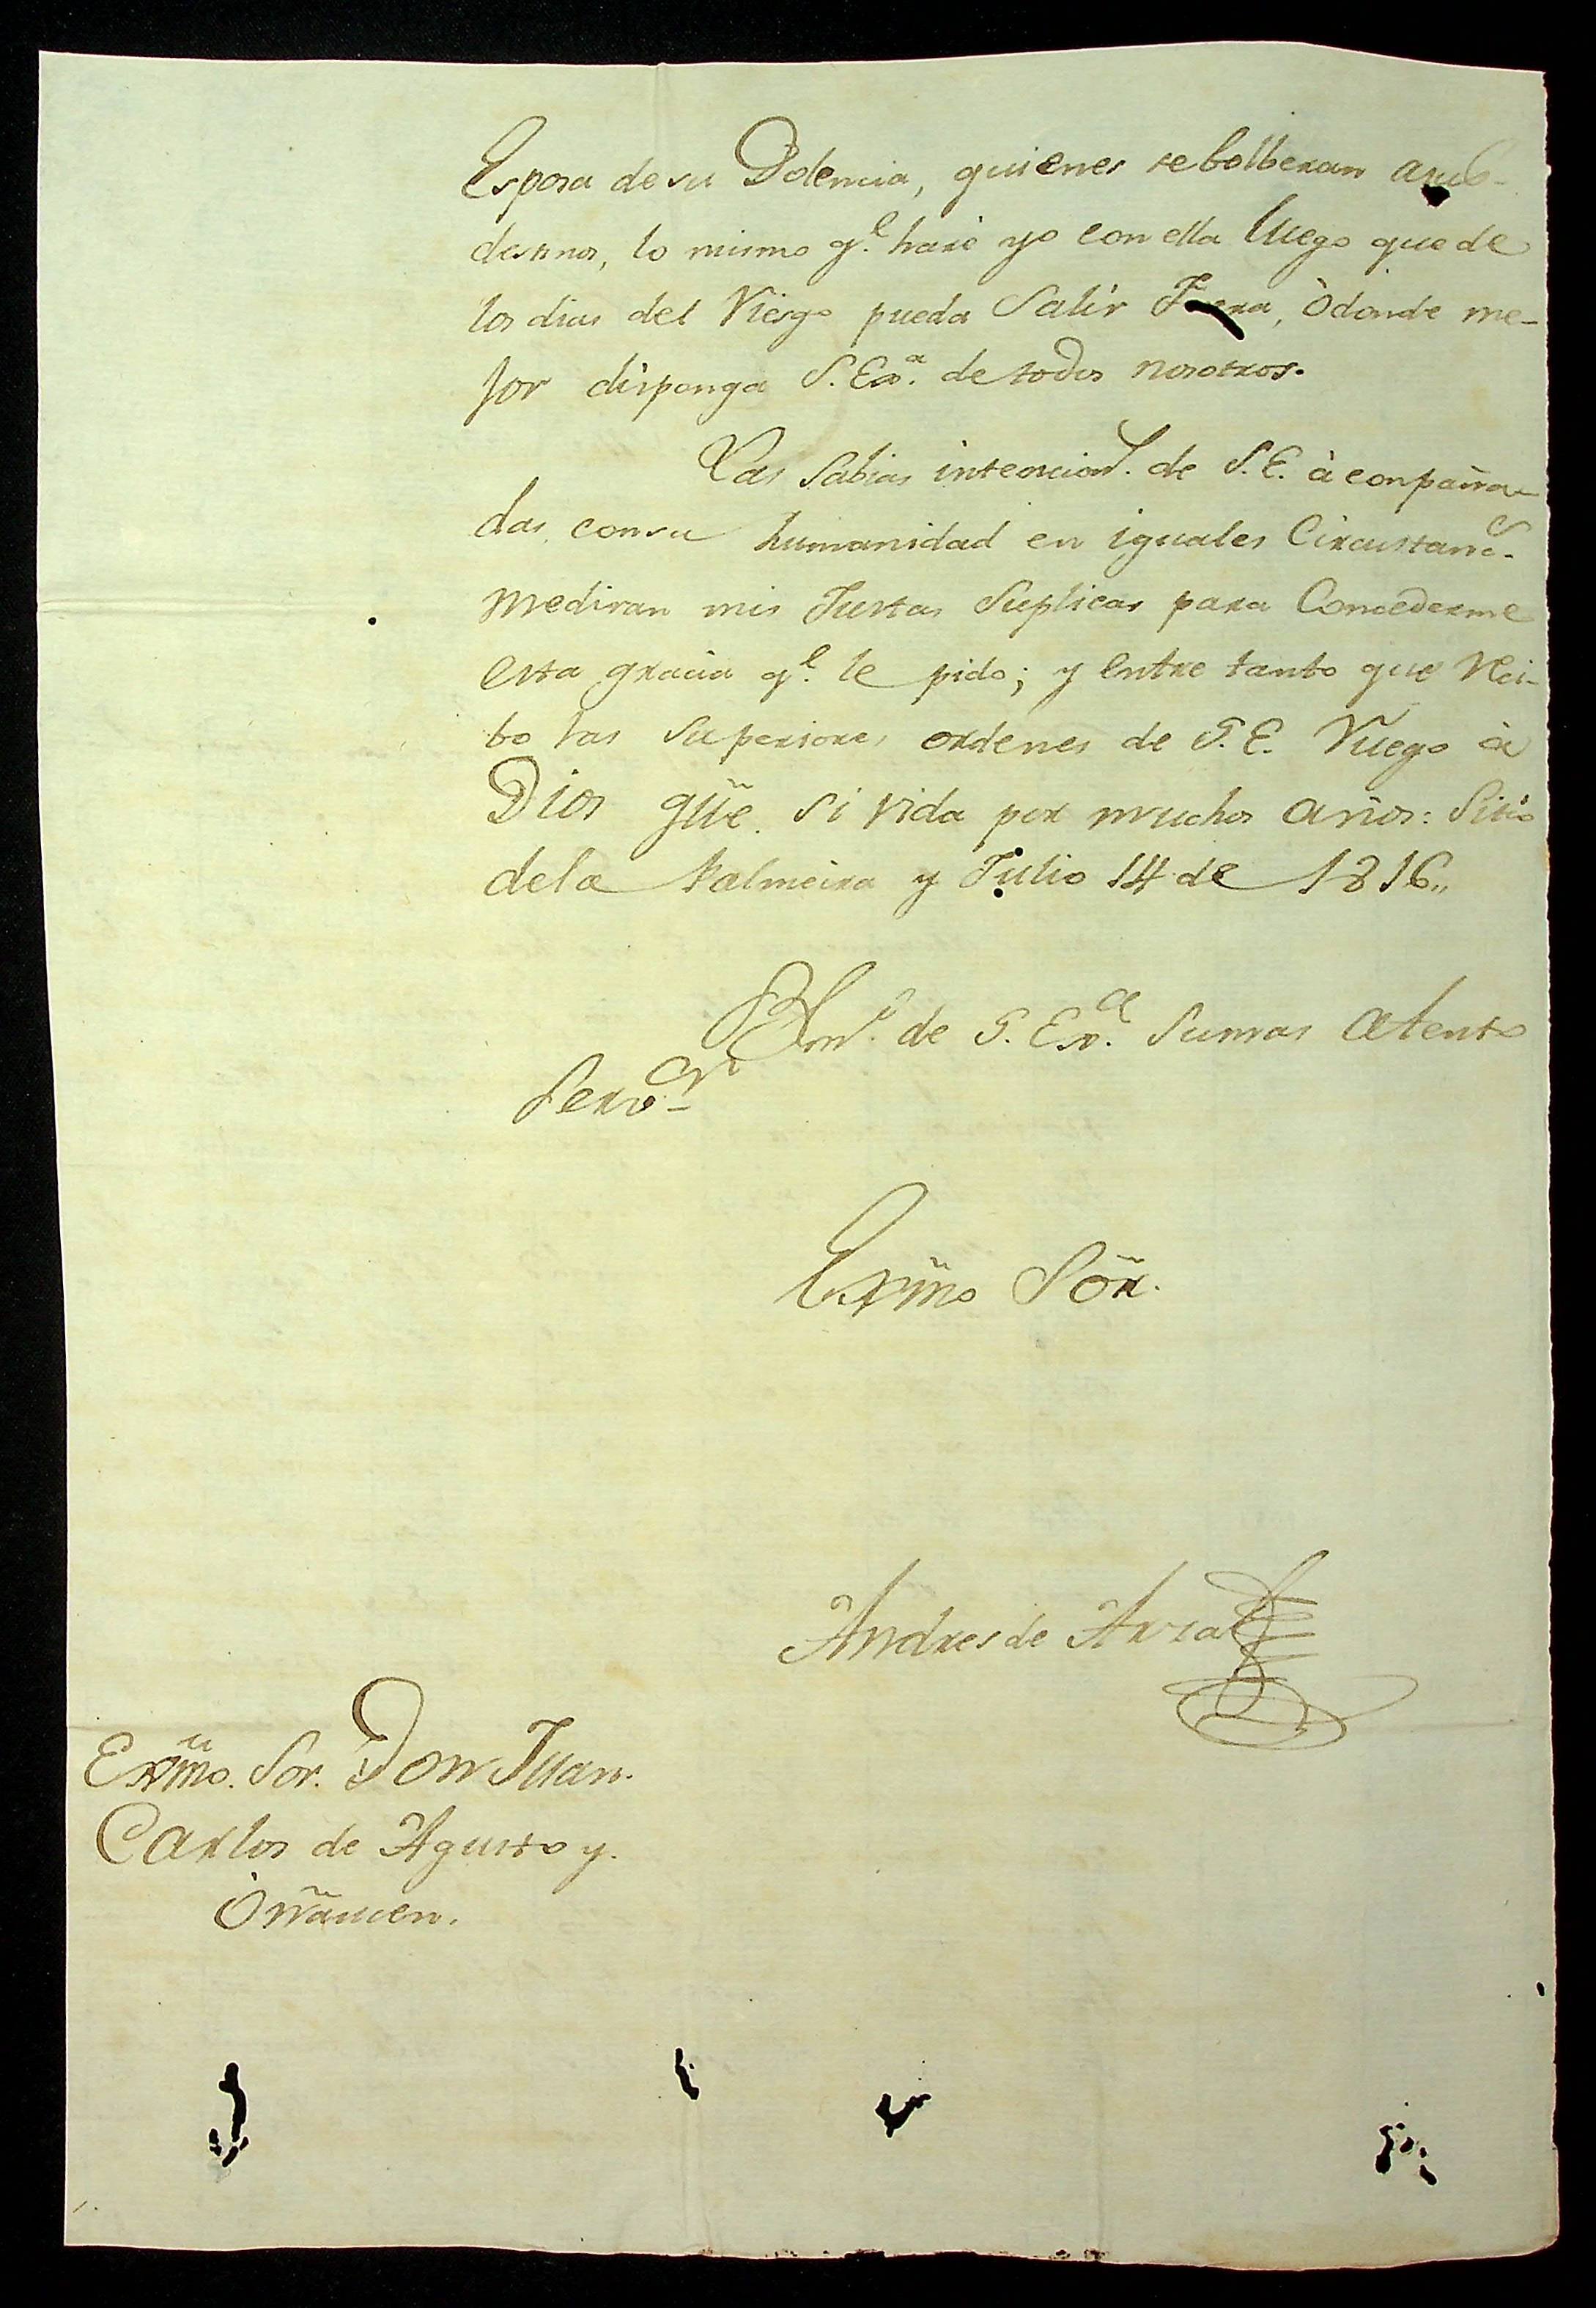 Esposa de su Dolencia, quienes se bolberan a sus
destinos, lo mismo q.e haré yo con ella luego que de
los dias del Riesgo pueda Salir Fuera, ò donde me-
jor disponga S. Exa. de todos nosotros.
Las Sabias intencion.s de S.E. àconpaña-
das con su humanidad en iguales Circustanc.s
mediran mis Justas Suplicas para Concederme
esta gracia q.e le pido; y entre tanto que Reci-
bo las Superiores ordenes de S.E. Ruego à
Dios gũe. Si Vida por muchos años: Sitio
de la Palmeira y Julio 14 de 1816,,
de S. Exa. Su mas Atento
Serv.or
Exm̃o Sõr.
Andres de Arza
Exm̃o. Sor. Don Juan
Carlos de Aguirre y.